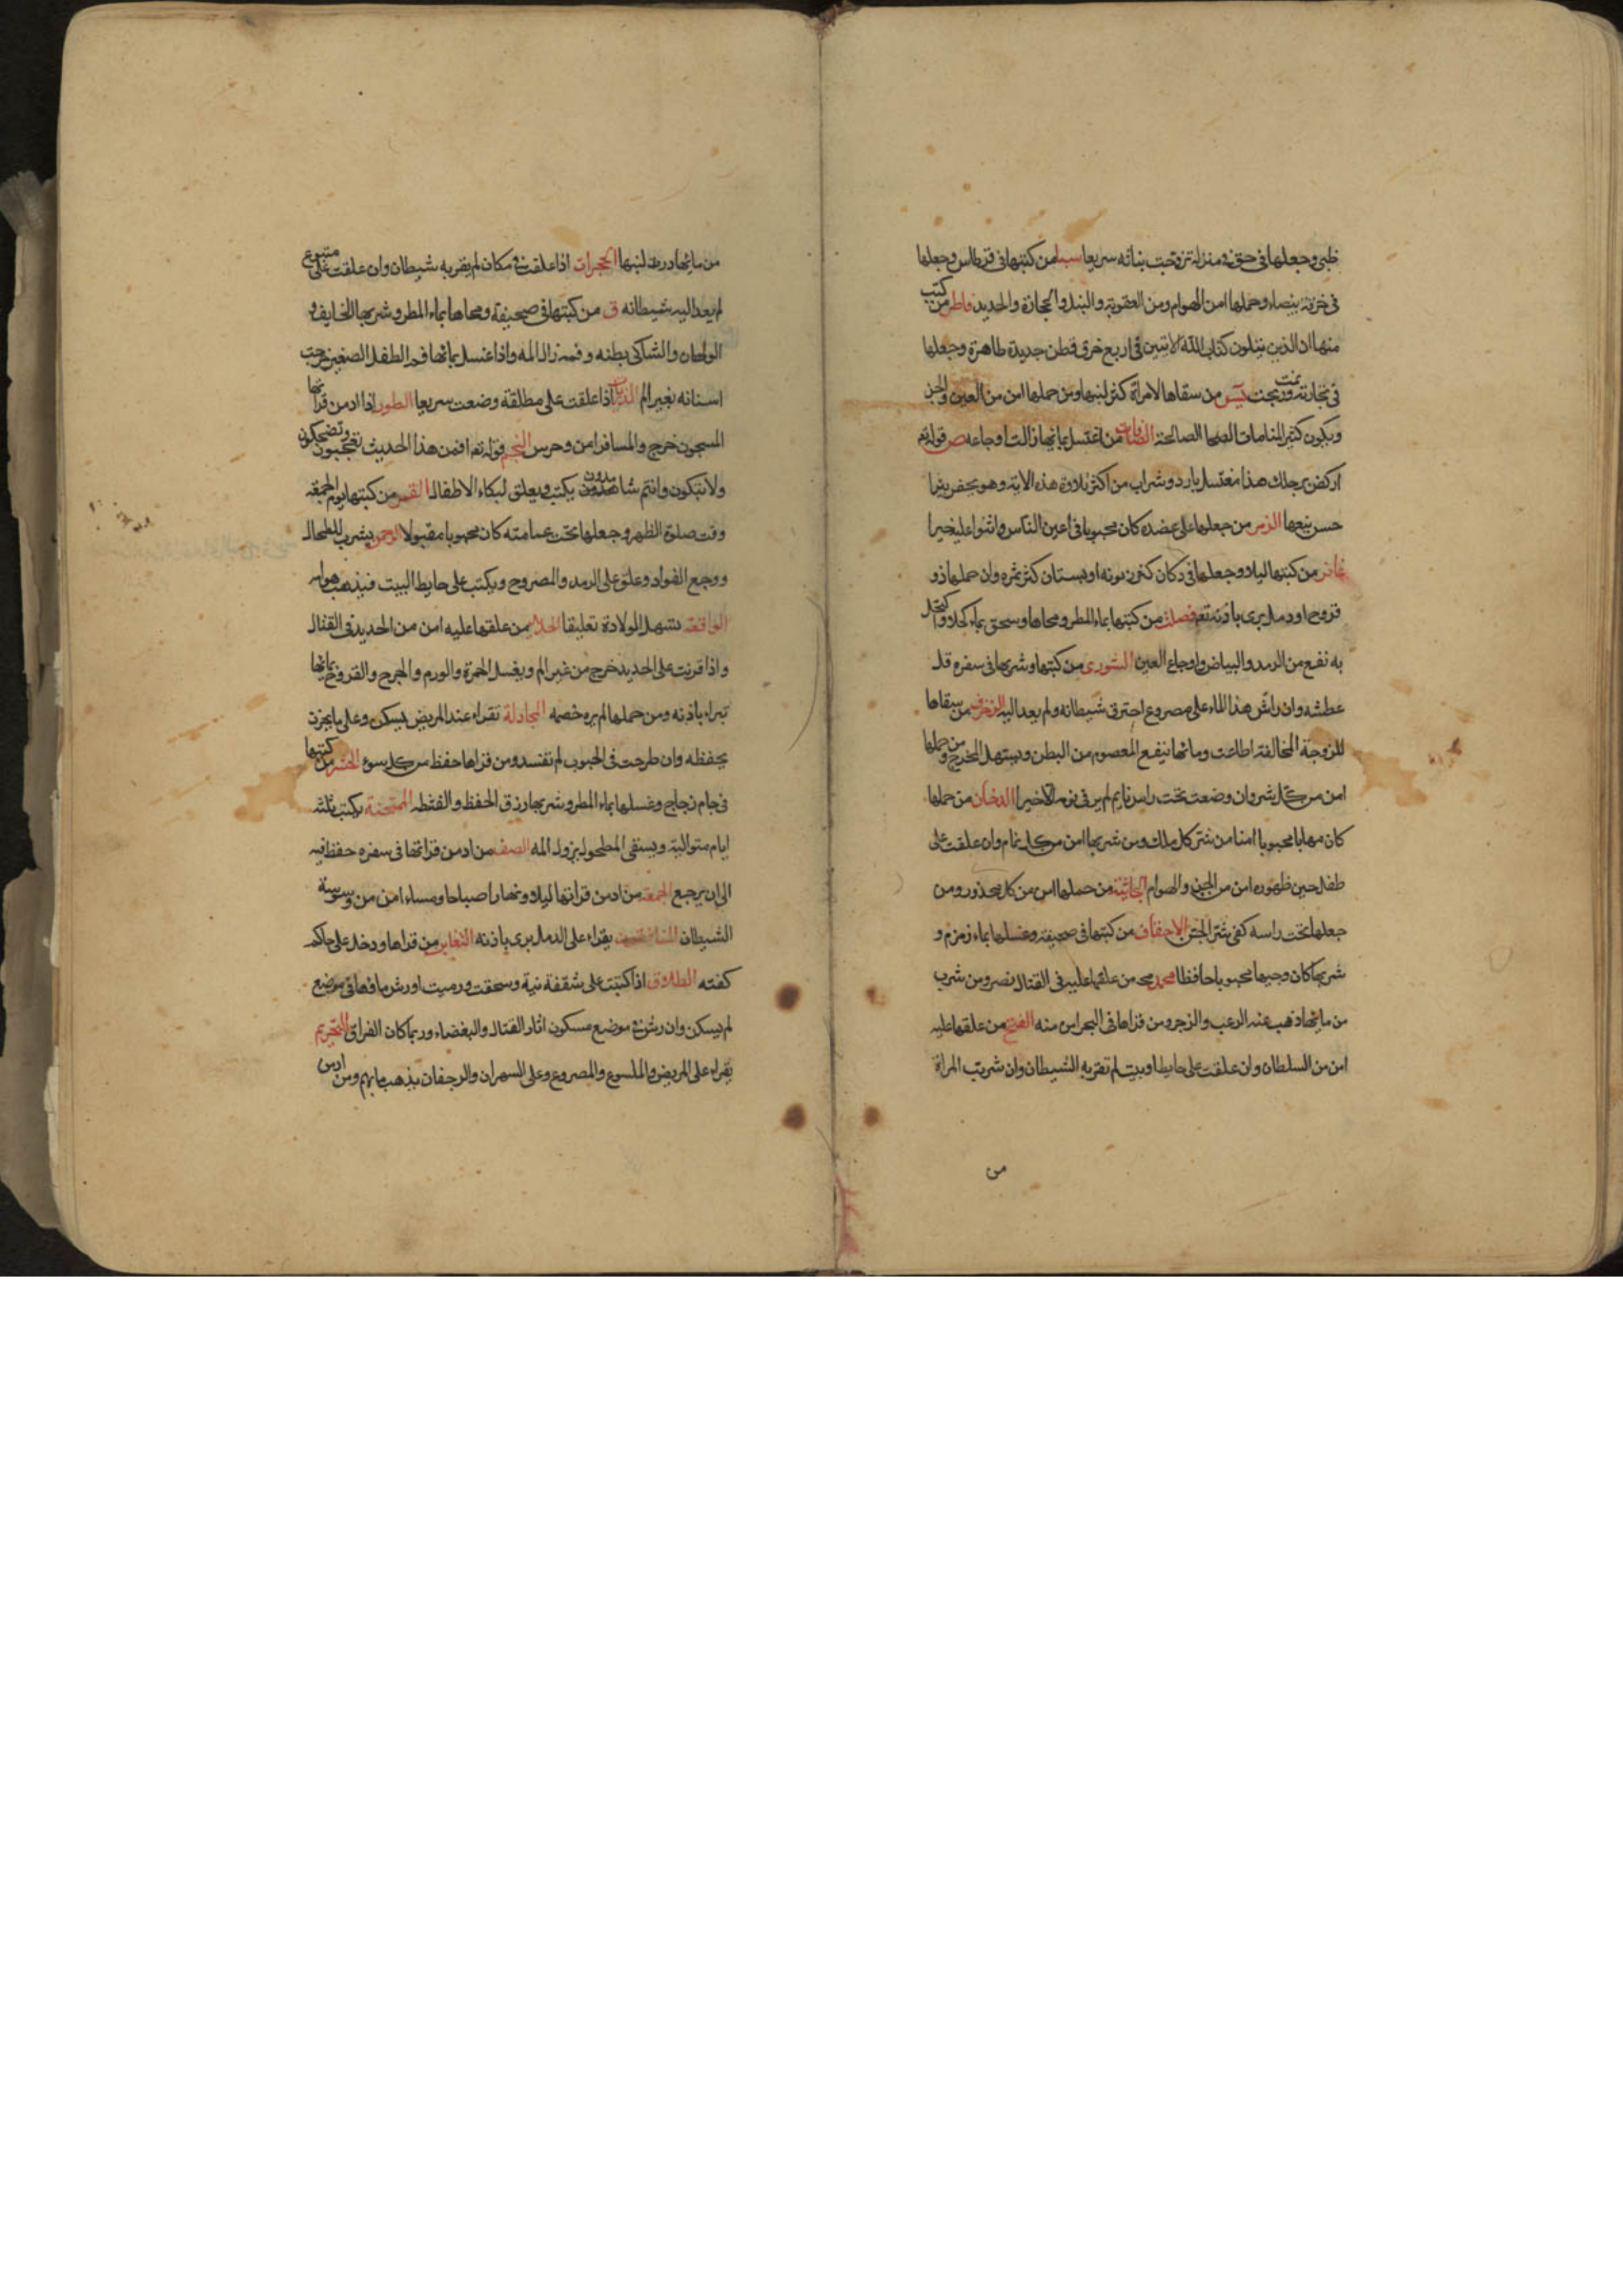 ظبي وجعلها في حق في منزله تزوجت بناته سريعا سبا من كتبها في قرطاس وجعلها
في خرقة بيضاء وحملها امن الهوام ومن العقوبة والنبل والحجارة والحديد فاطر من كتب
منها ان الذين يتلون كتاب الله الايتين في اربع خرق قطن جديدة طاهرة وجعلها
في تجارته نمت وربحت يس من سقاها لامراة كثر لبنها ومن حملها امن من العين والجن
ويكون كثير المنامات الصالحة الصافات من اغتسل بمائها زالت اوجاعه ص قوله تع
اركض برجلك هذا مغتسل بارد وشراب من اكثر تلاوة هذه الاية وهو يحفر بيرا
حسن نبعها الزمر من جعلها على عضده كان محبوبا في اعين الناس واثنوا عليه خيرا
غافر من كتبها ليلا وجعلها في دكان كثر زبونه او بستان كثر ثمره وان حملها ذو
قروح او دمل برى باذنه تع فصلت من كتبها بماء المطر ومحاها وسحق بماء كحلا واكتحل
به نفع من الرمد والبياض واوجاع العين الشورى من كتبها وشربها في سفره قل
عطشه وان راش هذا الماء على مصروع احترق شيطانه ولم يعد اليه الزخرف من سقاها
للزوجة المخالفة اطاعت وماءها ينفع المعصوم من البطن ويسهل المخرج ومن حملها
امن من كل شر وان وضعت تحت راس نايم لم ير في نومه الا خيرا الدخان من حملها
كان مهابا محبوبا امنا من شر كل ملك ومن شربها امن من كل نمام وان علقت على
طفل حين ظهوره امن من الجن والهوام الجاثية من حملها امن من كل محذور ومن
جعلها تحت راسه كفى شر الجن الاحقاف من كتبها في صحيفة وغسلها بماء زمزم و
شربها كان وجيها محبوبا حافظا محمد من علقها عليه في القتال نصر ومن شرب
من مائها ذهب عنه الرعب والزجر ومن قراها في البحر امن منه الفتح من علقها عليه
امن من السلطان وان علقت على حايط او بيت لم تقربه الشيطان وان شربت المراة
من
من مائها در لبنها الحجرات اذا علقت في مكان لم يقربه شيطان وان علقت على متبوع
لم يعد اليه شيطانه ق من كتبها في صحيفة ومحاها بماء المطر وشربها الخايف و
الولهان والشاكي بطنه وفمه زال المه واذا غسل بمائها فم الطفل الصغير خرجت
اسنانه بغير الم الذاريات اذا علقت على مطلقة وضعت سريعا الطور اذا ادمن قراتها
المسجون خرج والمسافر امن وحرس النجم قوله تع افمن هذا الحديث تعجبون وتضحكون
ولا تبكون وانتم سامدون يكتب ويعلق لبكاء الاطفال القمر من كتبها يوم الجمعة
وقت صلوة الظهر وجعلها تحت عمامته كان محبوبا مقبولا الرحمن يشرب للطحال
ووجع الفواد وعلق على الرمد والمصروح ويكتب على حايط البيت فيذهب هوامه
الواقعة تسهل الولادة تعليقا الحديد من علقها عليه امن من الحديد في القتال
واذا قريت على الحديد خرج من غير الم ويغسل الحمرة والورم والجرح والقروح بمائها
تبراء باذنه ومن حملها لم يره خصمه المجادلة تقراء عند المريض يسكن وعلى ما يخزن
يحفظه وان طرحت في الحبوب لم تفسد ومن قراها حفظ من كل سوء الحشر من كتبها
في جام زجاج وغسلها بماء المطر وشربها رزق الحفظ والفطنة الممتحنة يكتب ثلثة
ايام متوالية ويسقى المطحول يزول المه الصف من ادمن قراتها في سفره حفظ فيه
الى ان يرجع الجمعة من ادمن قراتها ليلا ونهارا صباحا ومساء امن من وسوسة
الشيطان المنافقون يقراء على الدمل يبرى باذنه التغابن من قراها ودخل على حاكم
كفته الطلاق اذا كتبت على شقفة نية وسحقت ورميت او رش ماؤها في موضع
لم يسكن وان رش في موضع مسكون اثار القتال والبغضاء وربما كان الفراق التحريم
يقراء على المريض والملسوع والمصروع وعلى السهران والرجفان يذهب ما بهم ومن ادمن